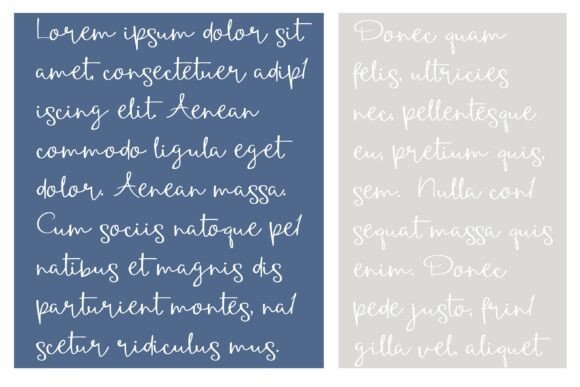 Lorem ipsum dolor sit
amet, consectetuer adipl
iscing elit. Aenean
commodo ligula eget
dolor. Aenean massa.
Cum sociis natoque pel
natibus et magnis dis
parturient montes, nal
scetur ridiculus mus.
Donec quam
felis, ultricies
nec, pellentesque
eu, pretium quis,
sem. Nulla conl
sequat massa quis
enim. Donec
pede justo, frinl
gilla vel, aliquet